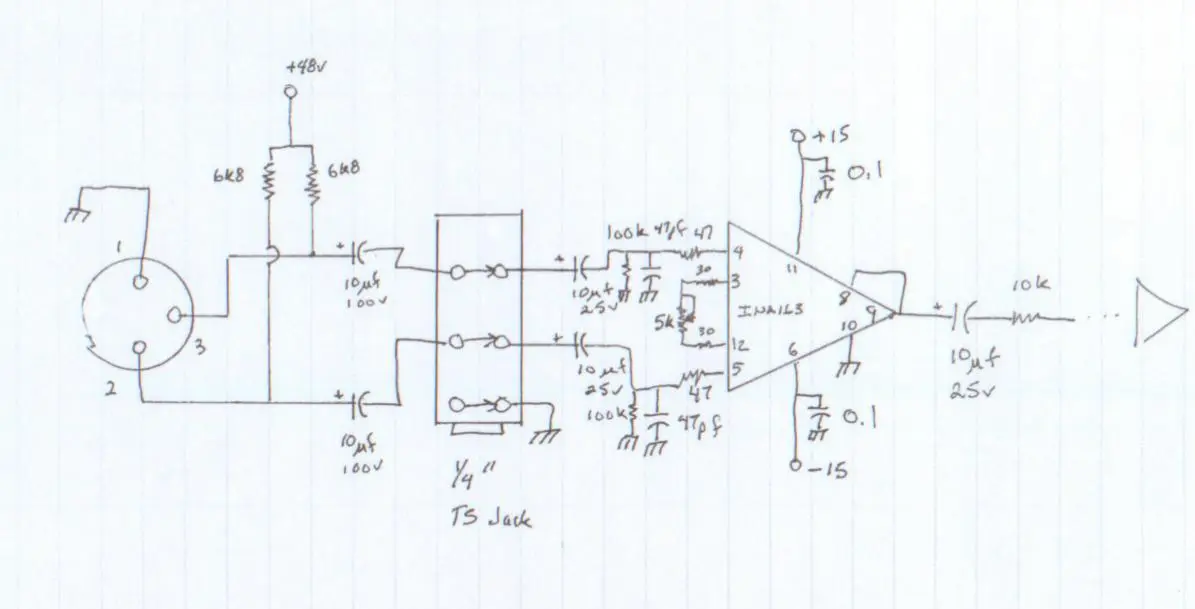 +48v
6k8
6k8
1
3
2
+
10µf
100v
+
10µf
100v
1/4"
TS Jack
+
10µf
25v
+
10µf
25v
100k
47pf
47
100k
47pf
47
4
3
12
5
30
5k
30
INA163
11
8
9
10
6
+15
0.1
0.1
-15
+
10µf
25v
10k
...